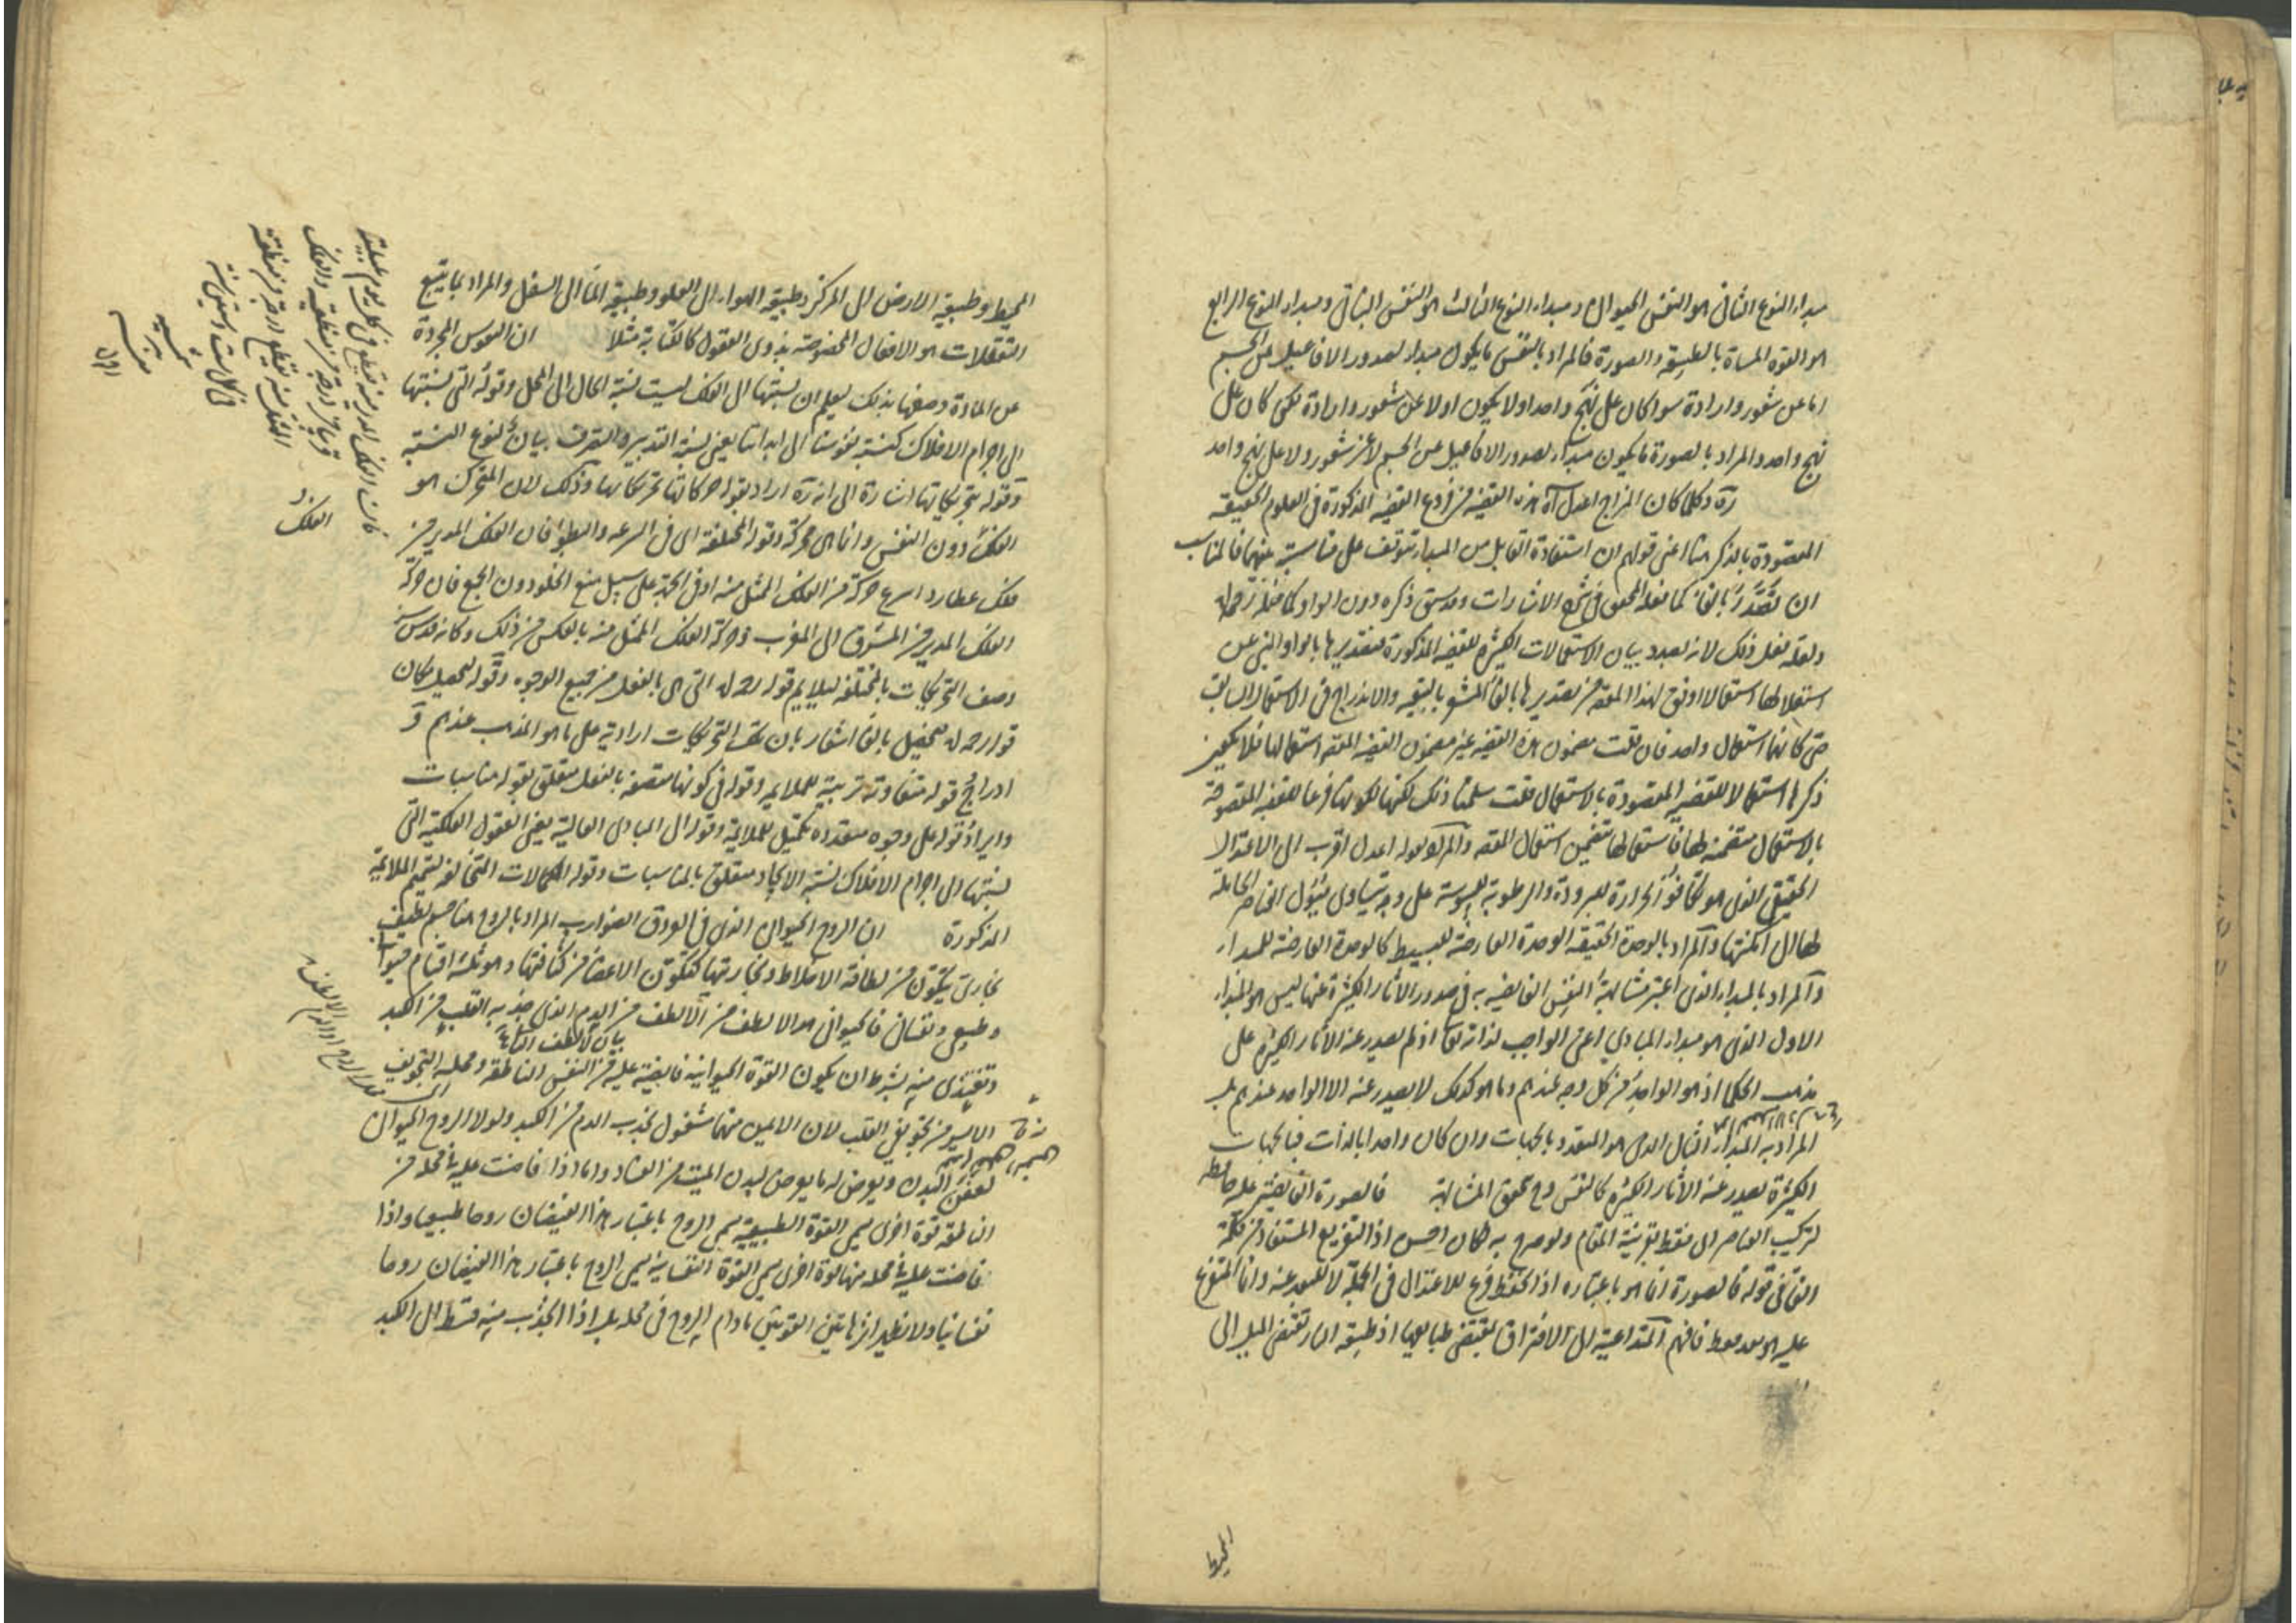 مبداء النوع الثانى هو النفس الحيوانى ومبداء النوع الثالث هو النفس النباتى ومبداء النوع الرابع
هو القوة المسماة بالطبيعة والصورة فالمراد بالنفس ما يكون مبداء لصدور الافاعيل عن الجسم
اما عن شعور وارادة سوا كان على نهج واحد اولا يكون اولا عن شعور وارادة لكن كان على
نهج واحد والمراد بالصورة ما يكون مبداء لصدور الافاعيل عن الجسم لا عن شعور ولا على نهج واحد
وكلما كان المزاج اعدل آه هذه القضية من فروع القضية المذكورة فى العلوم الحقيقة
المقصودة بالذكر هنا اعنى قولهم ان استفادة القابل من المبداء تتوقف على مناسبة بينهما فالمناسب
ان تصدر بالفا كما فعله المحقق فى شرح الاشارات وقد سبق ذكره دون الواو كما فعله رحمه الله
ولعله فعل ذلك لانه بصدد بيان الاستعمالات الكثيرة للقضية المذكورة فتصديرها بالواو المنبى عن
استقلالها استعمالا اوفق لهذا المقصد من تصديرها بالفا المشعر بالتبعية والاندراج فى الاستعمال السابق
حتى كانهما استعمال واحد فان قلت مضمون هذه القضية غير مضمون القضية المقصود استعمالها فلا يكون
ذكرها استعمالا للقضية المقصودة بالاستعمال قلت سلمنا ذلك لكنها لكونها فرعا للقضية المقصودة
بالاستعمال متضمنة لها فاستعمالها يتضمن استعمال المقصد والمراد بقوله اعدل اقرب الى الاعتدال
الحقيقى الذى هو تكافؤ الحرارة للبرودة والرطوبة لليبوسة على وجه يتساوى ميول العناصر الحاملة
لها الى امكنتها والمراد بالوحدة الحقيقة الوحدة العارضة للبسيط كالوحدة العارضة للمبداء
والمراد بالمبداء الذى اعتبر مشابهة النفس الفايضة به فى صدور الاثار الكثيرة عنها ليس هو المبداء
الاول الذى هو مبداء المبادى اعنى الواجب لذاته تعالى اذ لم يصدر عنه الاثار الكثيرة على
مذهب الحكما اذ هو الواحد من كل وجه عندهم وما هو كذلك لا يصدر عنه الا الواحد عندهم بل
المراد به المبداء الفعال الذى هو المتعدد بالجهات وان كان واحدا بالذات فبالجهات
الكثيرة يصدر عنه الاثار الكثيرة كالنفس وح تحقق المشابهة فالصورة الفايضة عليه حافظة
لتركيب العناصر اى فقط بقرينة المقام ولو صرح به لكان احسن اذ التفريع المستفاد من كلمة
الفا فى قوله فالصورة انما هو باعتباره اذ الحفظ فرع للاعتدال فى الجملة لا للبعد عنه وانما المتفرع
عليه هو فقط فافهم المتداعية الى الافتراق بمقتضى طبايعها اذ طبيعة النار تقتضى الميل الى
المحيط
المحيط وطبيعة الارض الى المركز وطبيعة الهواء الى العلو وطبيعة الماء الى السفل والمراد بما يتبع
التعقلات هو الافعال المخصوصة بذوى العقول كالكتابة مثلا ان النفوس المجردة
عن المادة وصفها بذلك ليعلم ان نسبتها الى الفلك ليست نسبة الحال الى المحل وقوله التى نسبتها
الى اجرام الافلاك كنسبة نفوسنا الى ابداننا يعنى نسبة التدبير والتصرف بيان لنوع النسبة
وقوله بتحريكاتها اشارة الى انه اراد بقوله حركاتها تحريكاتها وذلك لان المتحرك هو
الفلك دون النفس وانما هى محركة وقوله المختلفة اى فى السرعة والبطؤ فان الفلك المدير من
فلك عطارد اسرع حركة من الفلك الممثل منه او فى الجهة على سبيل منع الخلو دون الجمع فان حركة
الفلك المدير من المشرق الى المغرب وحركة الفلك الممثل منه بالعكس من ذلك وكانه قدس سره
وصف التحريكات بالمختلفة ليلايم قوله رحمه الله التى هى بالفعل من جميع الوجوه وقوله لتحصيل مكان
قوله رحمه الله فتحصيل بالفا اشعار بان تلك التحريكات ارادية على ما هو المذهب عندهم و
ادراج قوله متفاوتة تربية للملايمة وقوله فى كونها متصفة بالفعل متعلق بقوله مناسبات
وايراد قوله على وجوه متعددة تكميل للملايمة وقوله الى المبادى العالية يعنى العقول الفلكية التى
نسبتها الى اجرام الافلاك نسبة الايجاد متعلق بالمناسبات وقوله الكمالات المتخالفة لتتميم الملايمة
المذكورة ان الروح الحيوانى الذى فى العروق الضوارب المراد بالروح هنا جسم لطيف
بخارى يتكون من لطافة الاخلاط وبخاريتها كتكون الاعضا من كثافتها وهو ثلثة اقسام حيوانى
وطبيعى ونفسانى فالحيوانى هو الالطف من الالطف من الدم الذى جذبه القلب من الكبد
بيان لالطف الثانية
وتغتذى منه بشرط ان يكون القوة الحيوانية فايضة عليه من النفس الناطقة ومحله التجويف
الايسر من تجويفى القلب لان الايمن منهما مشغول بجذب الدم من الكبد ولولا الروح الحيوانى
لتعفن البدن ويعرض له ما يعرض لبدن الميت من الفساد واما اذا فاضت عليه فى محله من
الناطقة قوة اخرى يسمى القوة الطبيعية يسمى الروح باعتبار هذا الفيضان روحا طبيعيا واذا
فاضت عليه فى محله منها قوة اخرى يسمى القوة النفسانية يسمى الروح باعتبار هذا الفيضان روحا
نفسانيا ولا يظهر اثر هاتين القوتين ما دام الروح فى محله بل اذا انجذب منه قسط الى الكبد